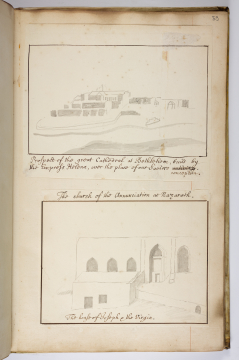 33
Prospect of the great Cathedral at Bethlehem, built by
the Empress Helena, over the place of our Saviors
The church of the Annunciation in Nazareth.
The house of Joseph & the Virgin.